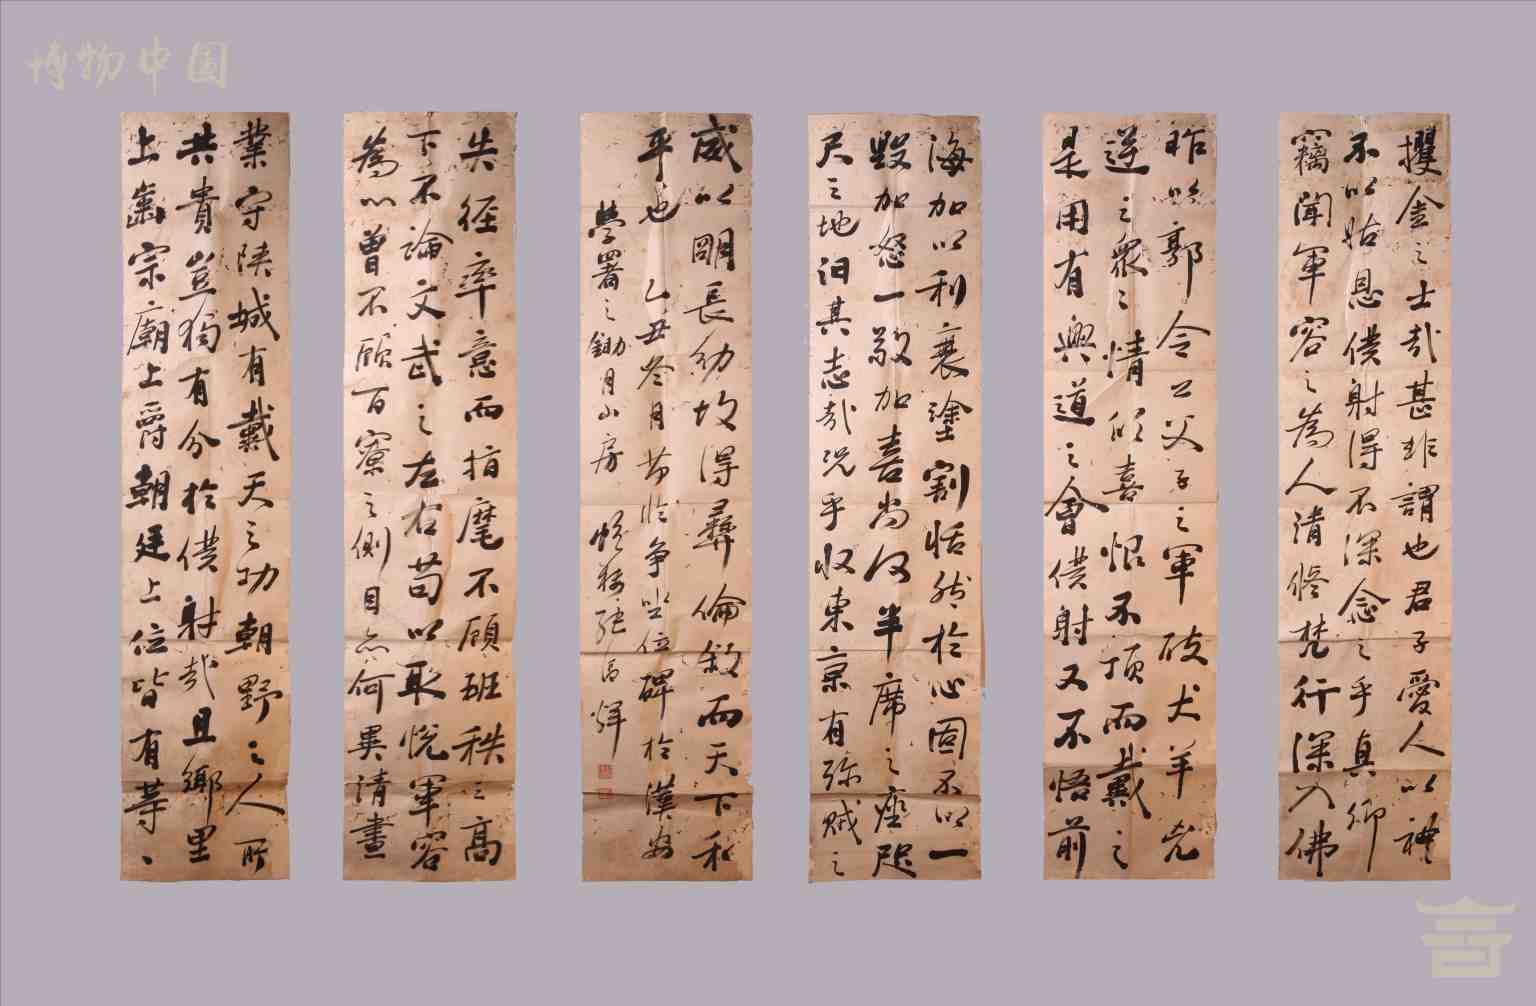 博物中国
攫金之士哉甚非謂也君子愛人以禮
不以姑息僕射得不深念之乎真卿
竊聞軍容之為人清修梵行深入佛
昨以郭令公父子之軍破犬羊兇
逆之衆之情欣喜恨不頂而戴之
是用有興道之會僕射又不悟前
海加以利衰塗割恬然於心固不以一
毀加怒一敬加喜尚何半席之座咫
尺之地汩其志哉況乎收東京有殄賊之
威以明長幼故得彝倫敘而天下和
平也 乙丑冬月節臨爭坐位碑於漢安
學署之鋤月山房 張 輝
失徑率意而指麾不顧班秩之高
下不論文武之左右苟以取悅軍容
為心曾不顧百寮之側目亦何異清晝
業守陝城有戴天之功朝野之人所
共貴豈獨有分於僕射哉且鄉里
上齒宗廟上爵朝廷上位皆有等、